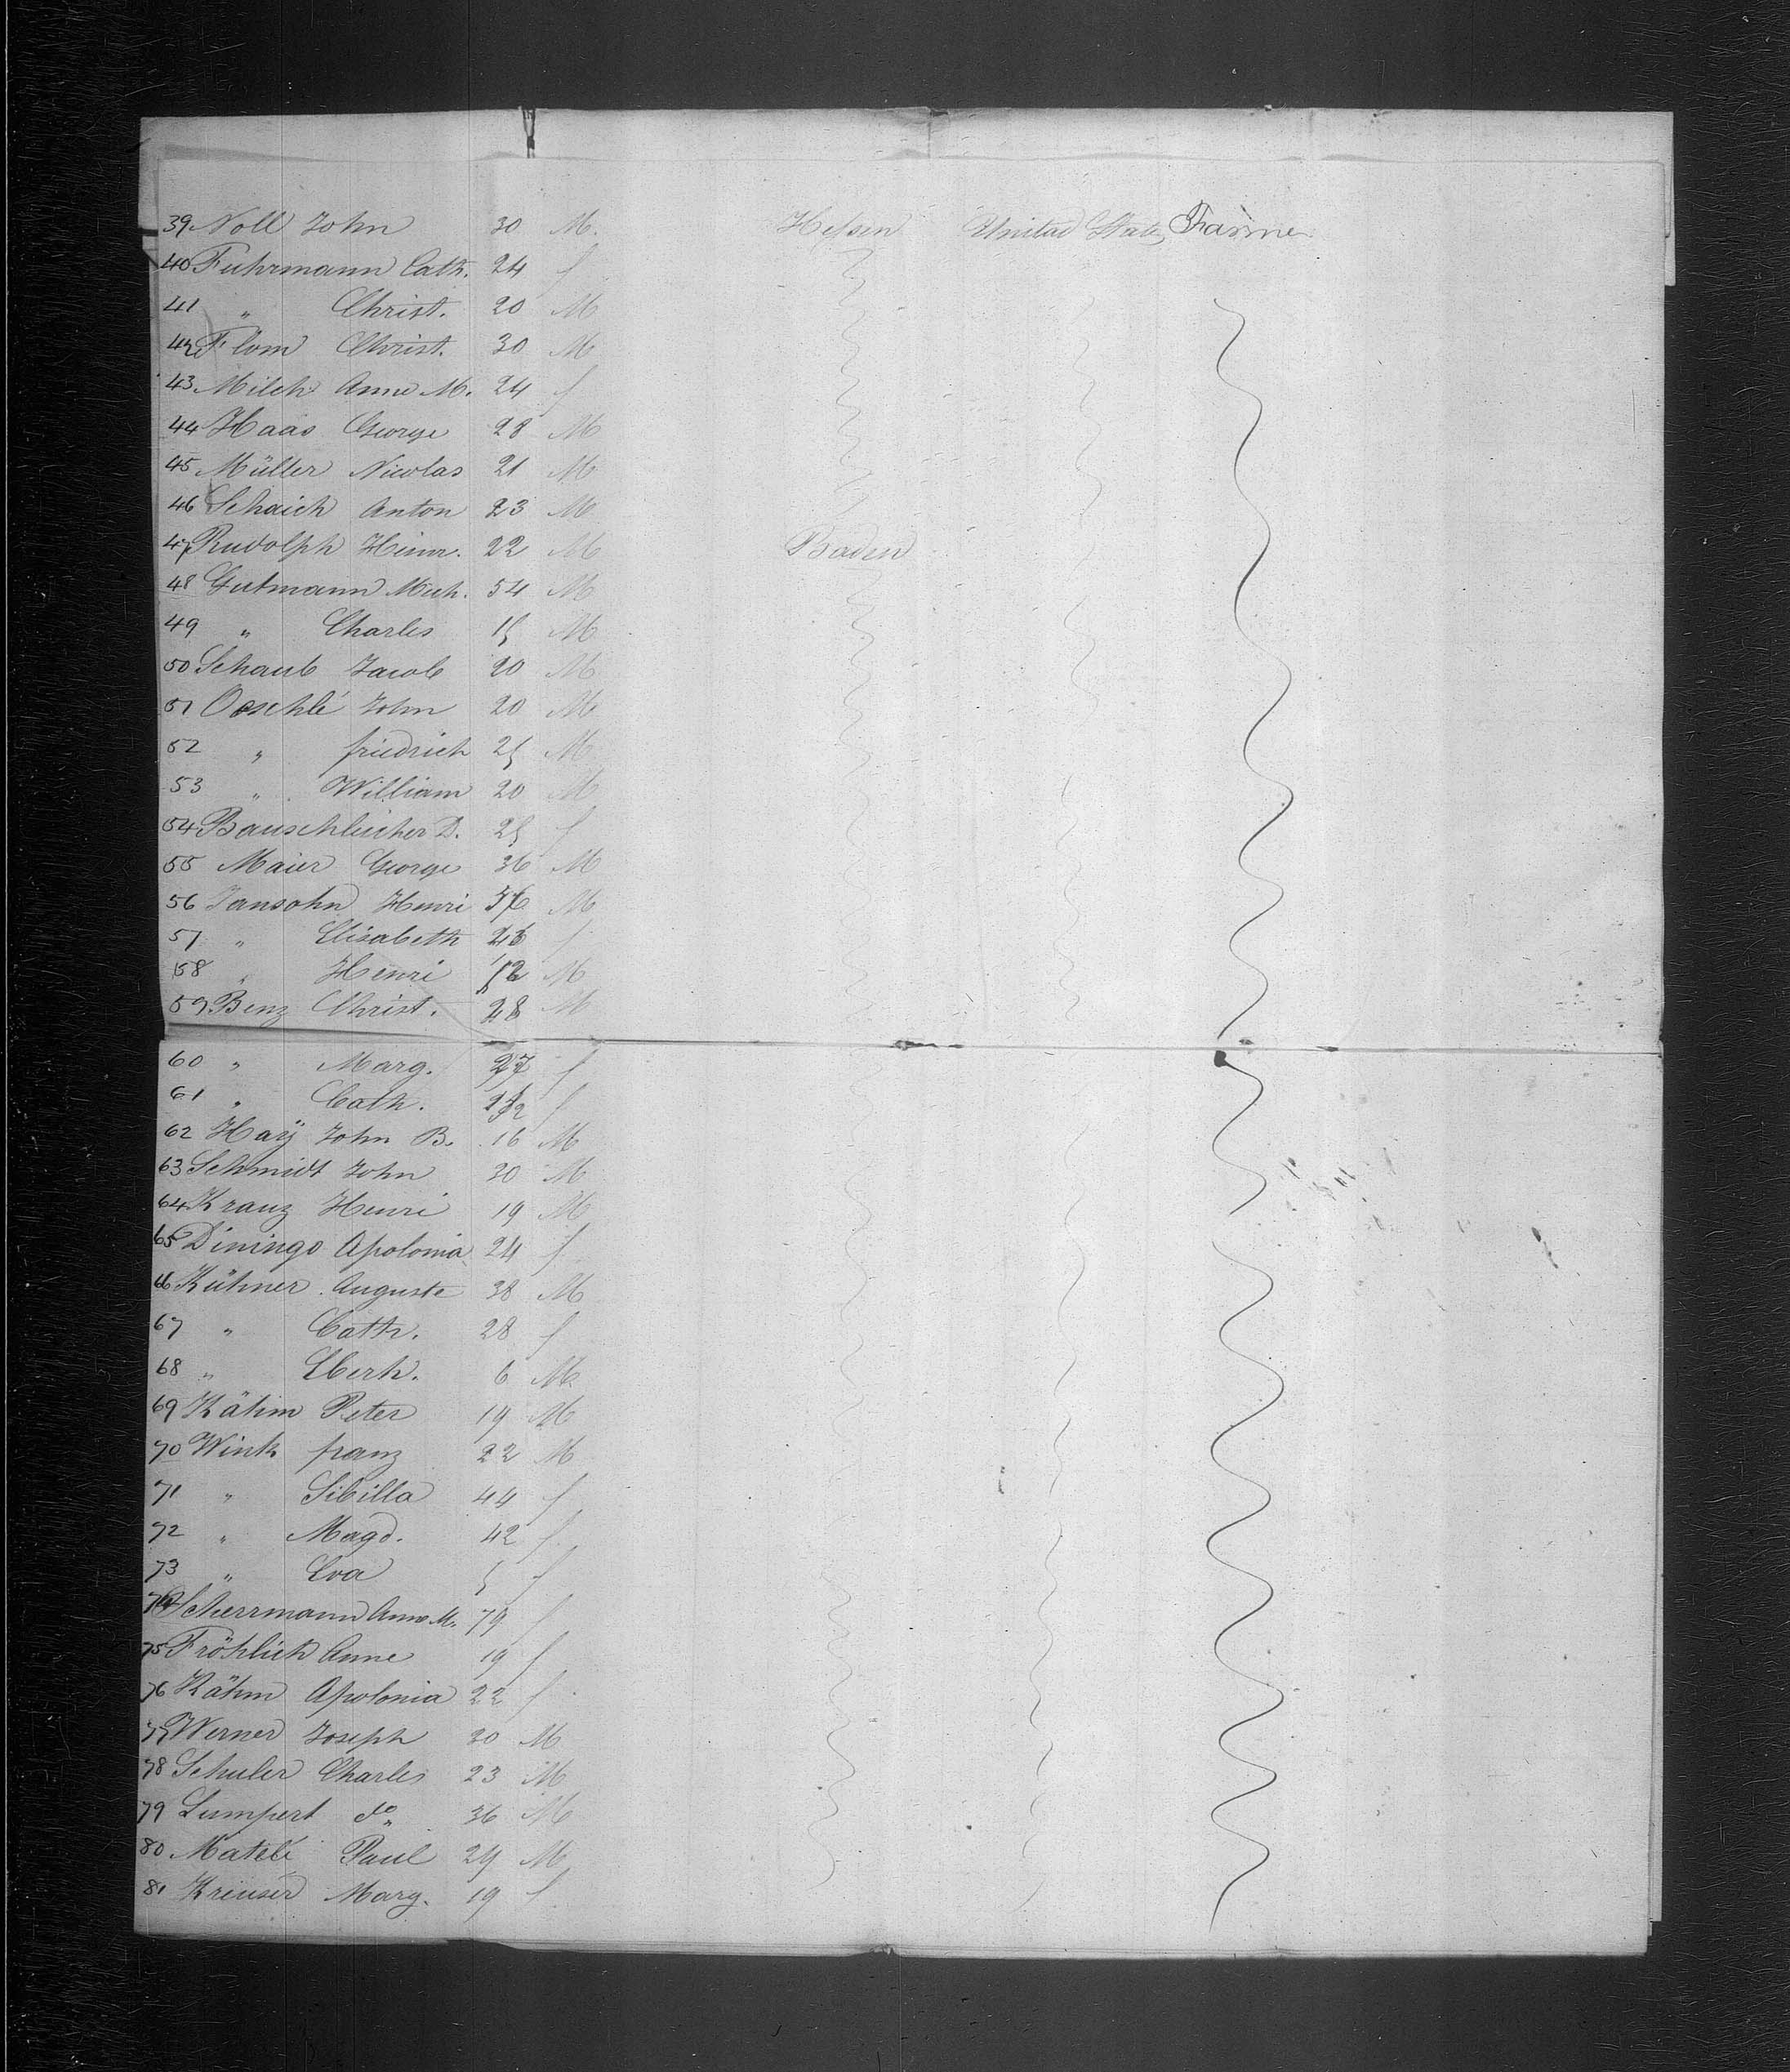 39 Noll John 30 M. Hessen Unitad States Farmer
40 Fuhrmann Cath. 24 f
41 " Christ. 20 M
42 Flom Christ. 30 M
43 Milch Anne M. 24 f
44 Haas George 28 M
45 Müller Nicolas 21 M
46 Schaich Anton 23 M
47 Rudolph Heinr. 22 M Baden
48 Gutmann Mich. 54 M
49 " Charles 15 M
50 Schaub Jacob 20 M
51 Oeschlé John 20 M
52 " friedrich 25 M
53 " William 20 M
54 Bauschlicher D. 25 f
55 Maier George 36 M
56 Jansohn Henri M
57 " Elisabeth f
58 " Henri M
59 Benz Christ. 28 M
60 " Marg. 27 f
61 " Cath. f
62 Haÿ John B. 16 M
63 Schmidt John 20 M
64 Kranz Henri 19 M
65 Diningo Apolonia 24 f
66 Kühner Auguste 38 M
67 " Cath. 28 f
68 " Eberh. 6 M
69 Kähm Peter 19 M
70 Wink franz 22 M
71 " Sibilla 44 f
72 " Magd. 42 f
73 " Eva 5 f
74 Scherrmann Anne M. 79 f
75 Fröhlich Anne 19 f
76 Kähm Apolonia 22 f
77 Werner Joseph 30 M
78 Schuler Charles 23 M
79 Lumpert do " 36 M
80 Matelé Paul 29 M
81 Kreuser Marg. 19 f